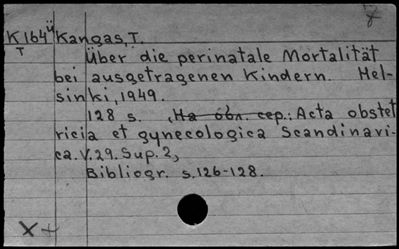 K164ü Kangas, T.
T
Über die perinatale Mortalität
bei ausgetragenen Kindern. Hel-
sinki, 1949.
128 s. , На обл. сер.: Acta obstet
ricia et gynecologica Scandinavi-
ca. V.29. Sup. 2,
Bibliogr. s. 126-128.
X